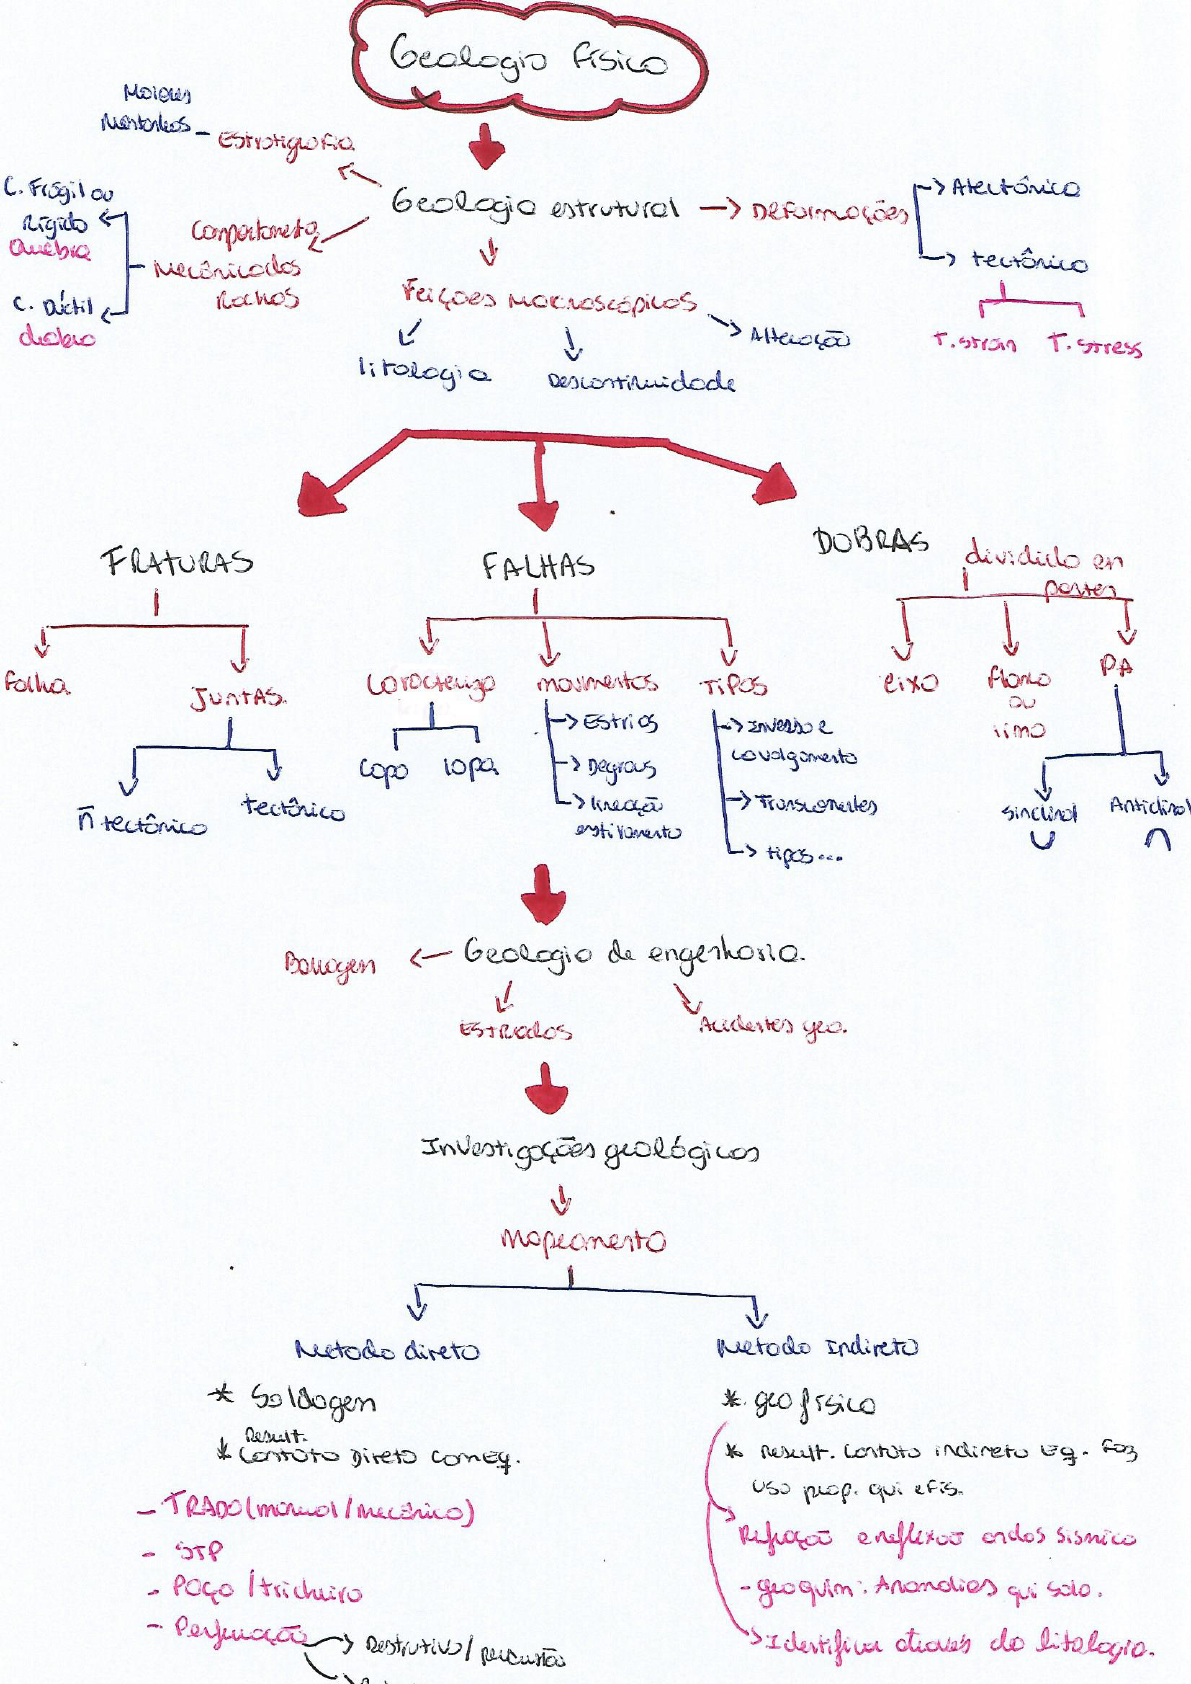 Geologia Física
Maiores
Montanhas - Estratigrafia
Geologia estrutural → Deformações
Atectônica
tectônica
T. strain T. stress
C. Frágil ou
Rígido
Quebra
C. Dúctil
dobra
Comportamento
Mecânico dos
Rochas
Feições Macroscópicas
litologia
Descontinuidade
Alteração
FRATURAS
FALHAS
DOBRAS
dividida em
partes
Falha
Juntas
ñ tectônica
tectônica
Caracteriza
capa lapa
movimentos
→ Estrias
→ Degraus
→ lineação
estiramento
Tipos
→ Inversa e
cavalgamento
→ Transcorrentes
→ tipos...
eixo
flanco
ou
limo
PA
sinclinal
Anticlinal
Geologia de engenharia.
Barragem
Estradas
Acidentes geo.
Investigações geológicas
Mapeamento
Metodo direto
* Soldagem
Result.
* Contato Direto com Eq.
- TRADO (manual/mecânico)
- STP
- Poço / tricheira
- Perfuração → Destrutivo / percursão
Metodo Indireto
* geofísica
* Result. Contato indireto Eq. Faz
uso prop. qui e fis.
Refração e reflexão ondas sismica
- geoquim: Anomalias qui solo.
→ Identifica atraves da litologia.